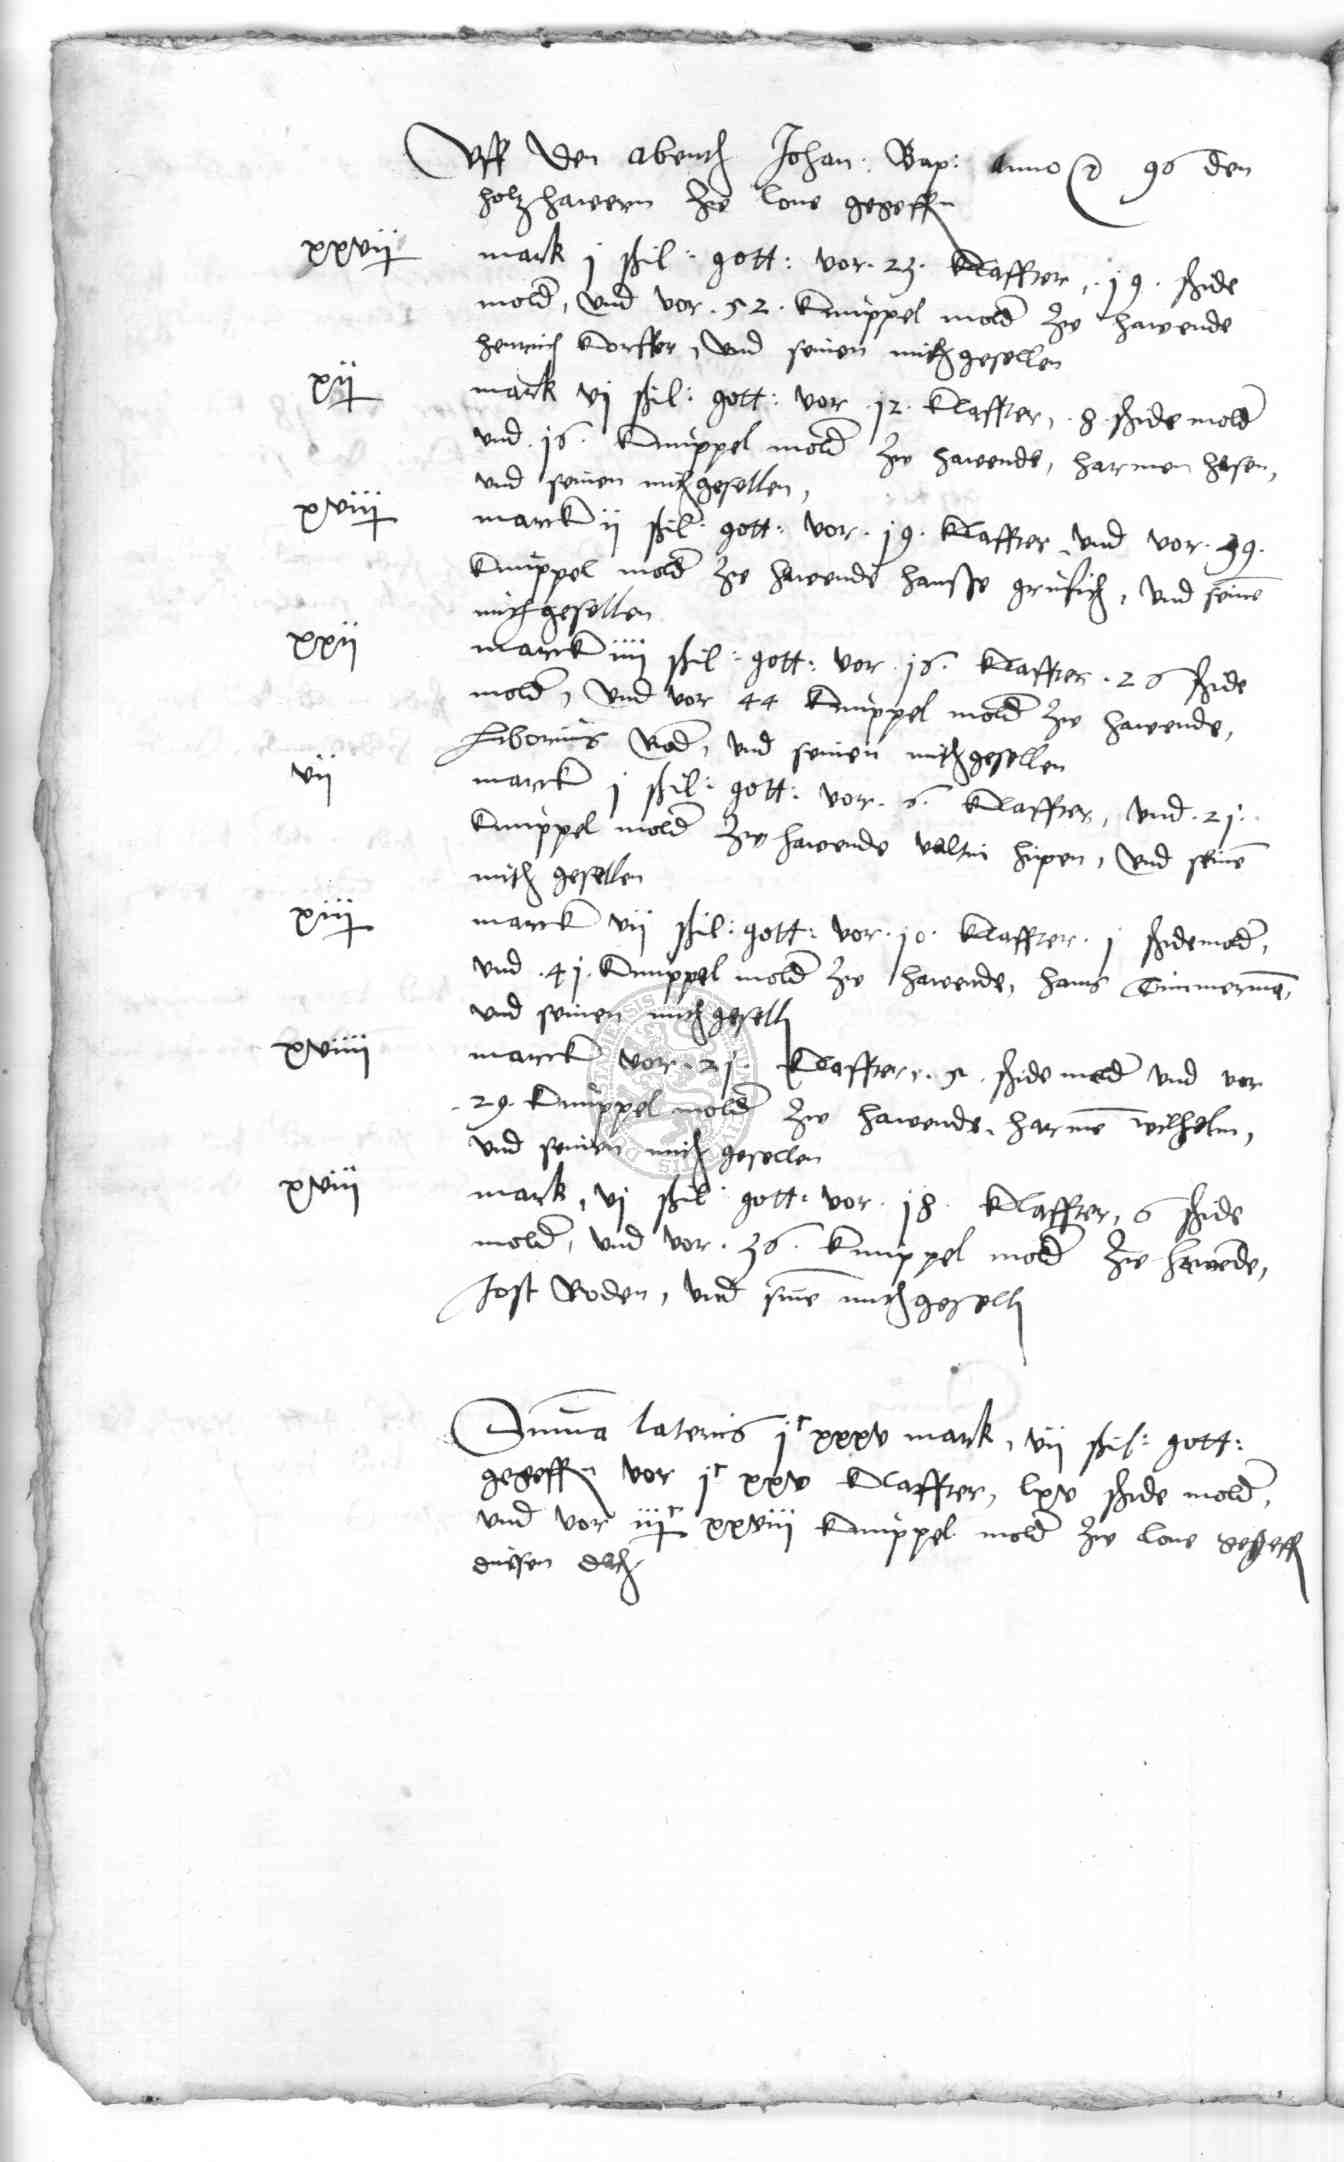 Uff den abenth Johan: Bap: Anno ꝛ 96 den
holzhawern zw lone gegeffn
xxvii mark j schil: gott: vor . 23 . Klaffter, . 19 . schide
mold, und vor . 52 . Knüppel mold zw hawende
henrich Korffer, und seinen mithgesellen
xii mark vj schil: gott: vor . 12 . Klaffter, . 8 . schide mold
und . 16 . Knüppel mold zw hawende, harmen hesen,
und seinen mithgesellen,
xviii marck ii schil: gott: vor . 19 . Klaffter und vor . 99 .
Knüppel mold zw hawende hansse, und seinē
mithgesellen
xxii marck iiii schil: gott: vor . 16 . Klaffter . 26 schide
mold, und vor 44 Knüppel mold zw hawende,
Liborius Rod, und seinen mithgesellen
vii marck j schil: gott: vor . 6 . Klaffter, und . 21 .
Knüppel mold zw hawende valtin hipen, und seinē
mith gesellen
xiii marck vii schil: gott: vor . 10 . Klaffter . j schidemold,
und . 41 . Knüppel mold zw hawende, hans Timmermē,
und seinen mithgeselln
xviiii marck vor . 21 . Klaffter, . 5 . schide mold und vor
. 29 . Knüppel mold zw hawende, harmē wilhelm,
und seinen mith gesellen
xviii mark, vj schil: gott: vor . 18 . Klaffter, 6 schide
mold, und vor . 36 . Knüppel mold zw hawende,
Jost Roden, und sinē mithgeselln
Summa lateris jc xxxv mark, vii schil: gott:
gegeffn vor jc xxv Klaffter, lxv schide mold,
und vor iiic xxviii Knüppel mold zw lone gegeffn
düssen